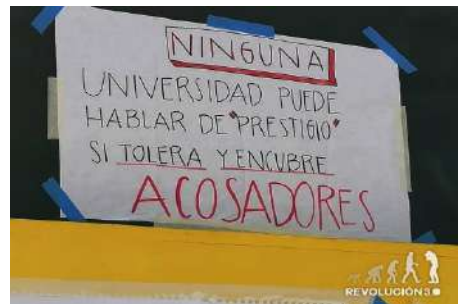 NINGUNA
UNIVERSIDAD PUEDE
HABLAR DE "PRESTIGIO"
SI TOLERA Y ENCUBRE
ACOSADORES
REVOLUCIÓN3.0